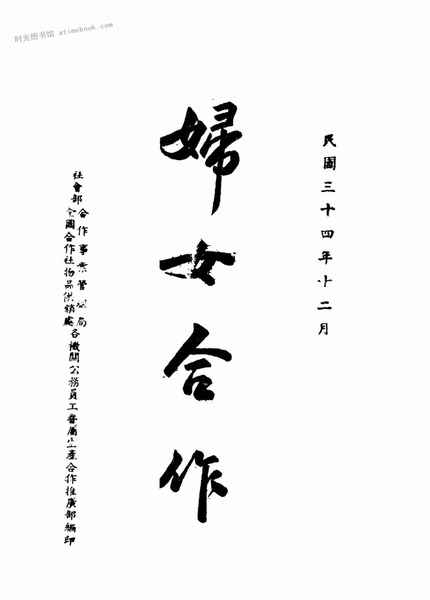 时光图书馆 atimebook.com
民國三十四年十二月
婦女合作
社會部合作事業管理局
全國合作社物品供銷處
各機關公務員工眷屬生產合作推廣部編印